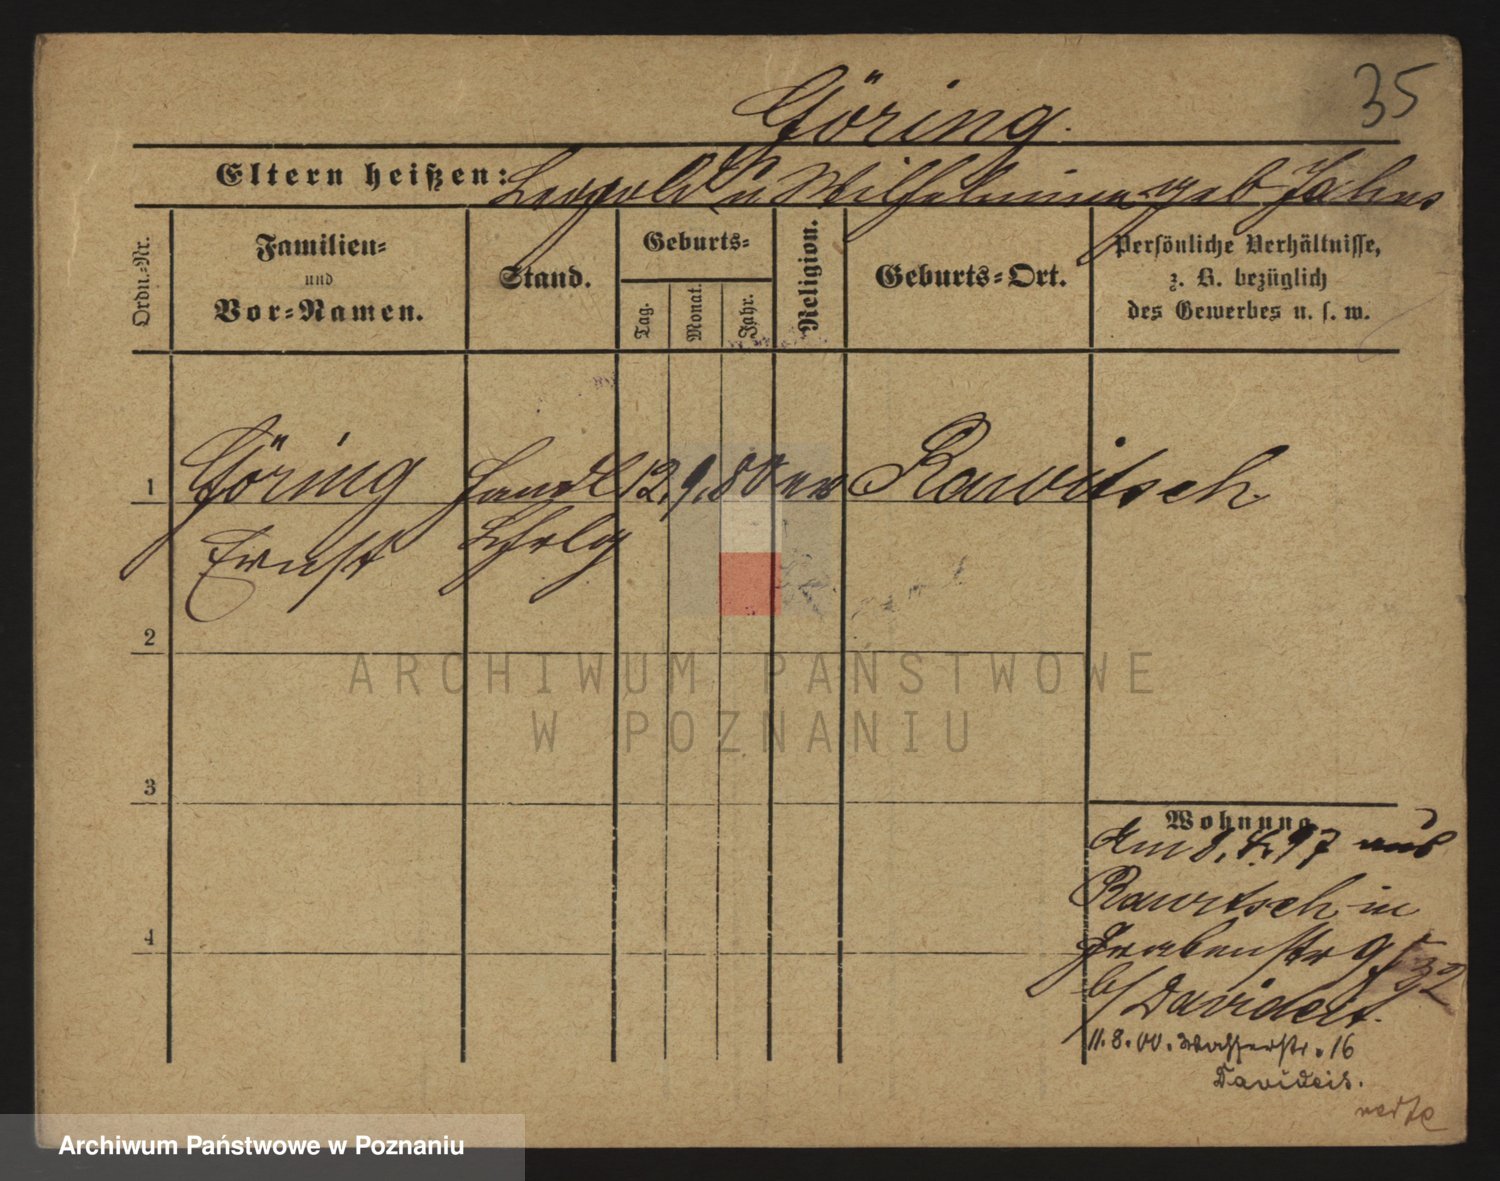 35
Göring.
Eltern heißen: Leopold u Wilhelmine geb Jahns
Ordn.-Nr.
Familien-
und
Vor-Namen.
Stand.
Geburts-
Tag.
Monat.
Jahr.
Religion.
Geburts-Ort.
Persönliche Verhältnisse,
z. B. bezüglich
des Gewerbes u. s. w.
1 Göring Handl 12. 9. 80 ev Rawitsch
Ernst Lehrlg
2
ARCHIWUM PAŃSTWOWE
W POZNANIU
3
Wohnung
Am 8. 4. 97 aus
Rawitsch in
Grabenstr 9
b/ Davideit.
11. 8. 00. Wasserstr. 16
Davideis.
4
Archiwum Państwowe w Poznaniu